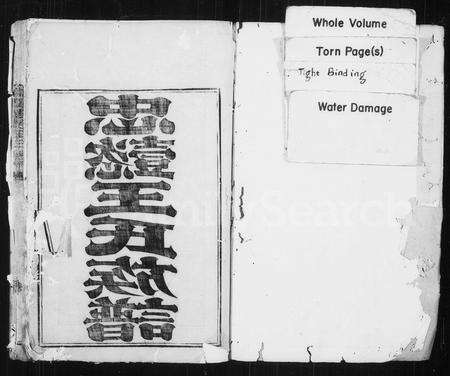 Whole Volume
Torn Page(s)
Tight Binding
Water Damage
王氏族譜
FamilySearch